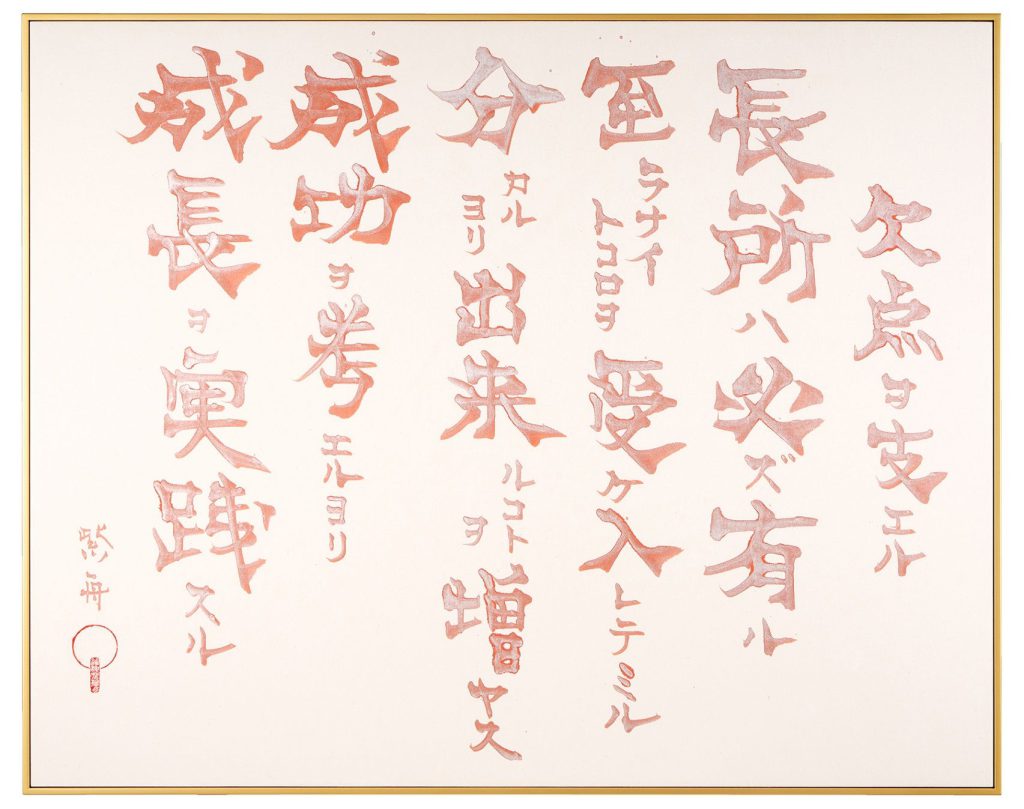 欠点ヲ支エル
長所ハ必ズ有ル
至ラナイトコロヲ受ケ入レテミル
分カルヨリ出来ルコトヲ増ヤス
成功ヲ考エルヨリ
成長ヲ実践スル
紫舟